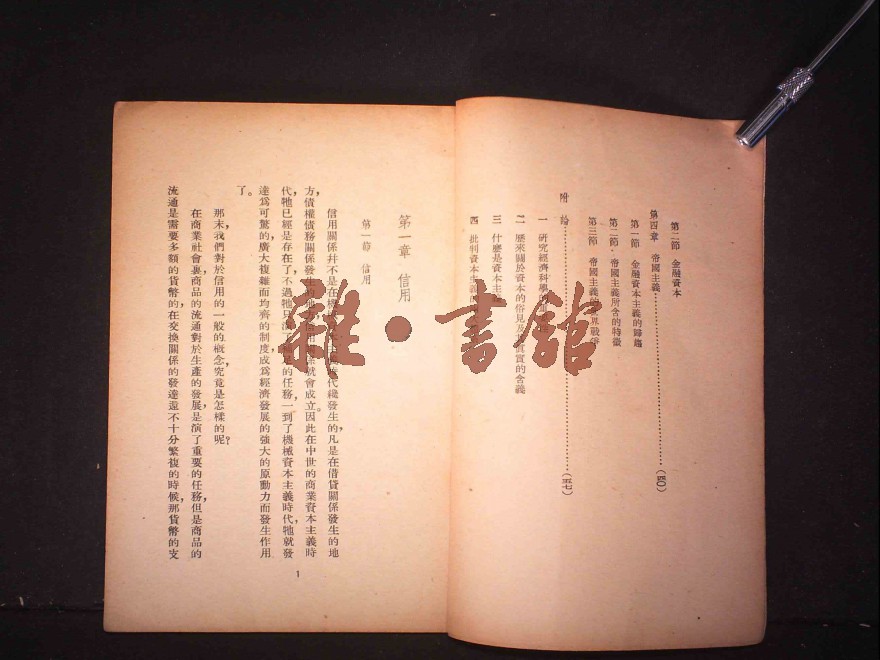 第二節 金融資本
第四章 帝國主義……(四〇)
第一節 金融資本主義的歸趨
第二節 帝國主義所含的特徵
第三節 帝國主義的界戰爭
附論……(五七)
一 研究經濟科學
二 歷來關於資本的俗見及真實的含義
三 什麼是資本主
四 批判資本主義的
第一章 信用
第一節 信用
信用關係并不是在機代纔發生的,凡是在借貸關係發生的地
方,債權債務關係發生的地方,信用關係就會成立。因此在中世的商業資本主義時
代,牠已經是存在了。不過牠只演了補足的任務,一到了機械資本主義時代,牠就發
達爲可驚的,廣大複雜而均齊的制度,成爲經濟發展的強大的原動力而發生作用
了。
那末,我們對於信用的一般的概念,究竟是怎樣的呢?
在商業社會裏,商品的流通對於生產的發展,是演了重要的任務,但是商品的
流通是需要多額的貨幣的,在交換關係的發達還不十分繁複的時候,那貨幣的支
1
雜·書館